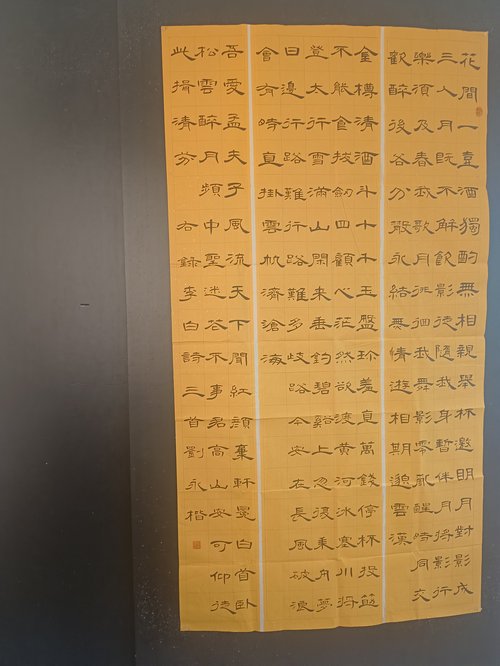 花間一壺酒獨酌無相親舉杯邀明月對影成
三人月既不解飲影徒隨我身暫伴月將影行
樂須及春我歌月徘徊我舞影零亂醒時同交
歡醉後各分散永結無情遊相期邈雲漢
金樽清酒斗十千玉盤珍羞直萬錢停杯投筯
不能食拔劍四顧心茫然欲渡黃河冰塞川將
登太行雪滿山閑來垂釣碧谿上忽復乘舟夢
日邊行路難行路難多歧路今安在長風破浪
會有時直掛雲帆濟滄海
吾愛孟夫子風流天下聞紅顏棄軒冕白首臥
松雲醉月頻中聖迷花不事君高山安可仰徒
此揖清芬右錄李白詩三首劉永楷